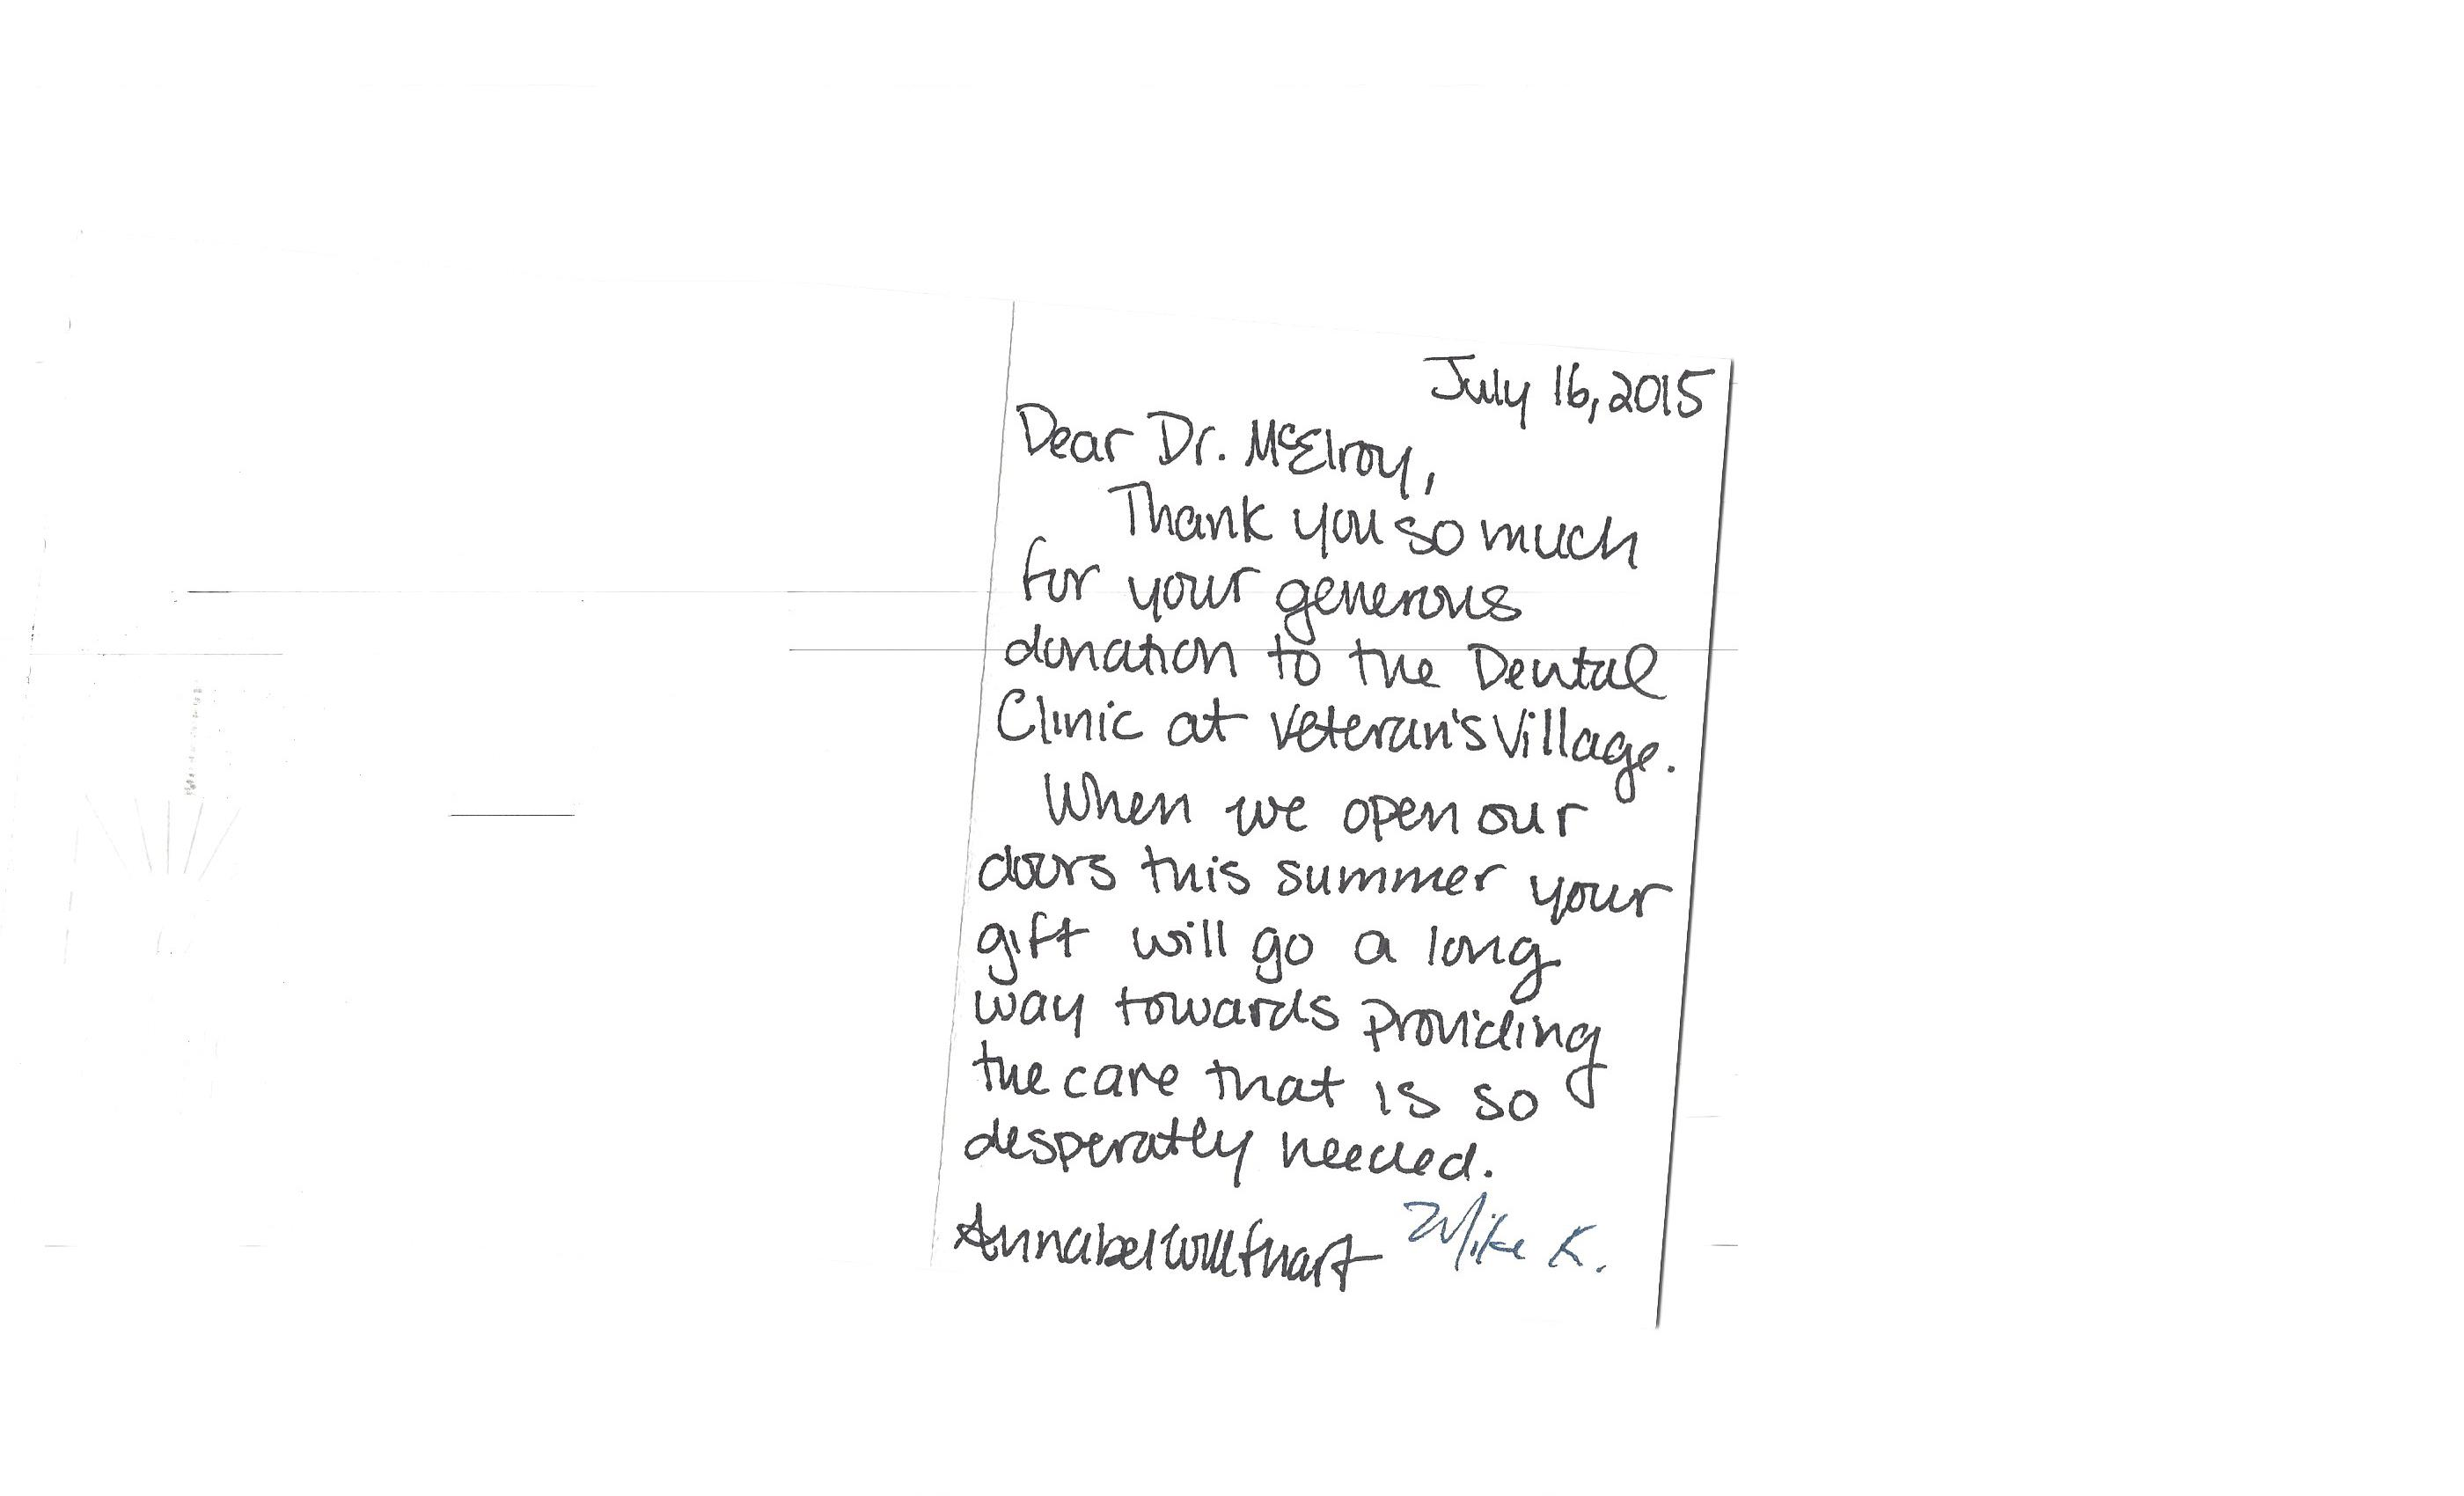 July 16, 2015
Dear Dr. McElroy,
Thank you so much
for your generous
donation to the Dental
Clinic at Veteran's Village.
When we open our
doors this summer your
gift will go a long
way towards providing
the care that is so
desperatly needed.
Annabel Mike K.